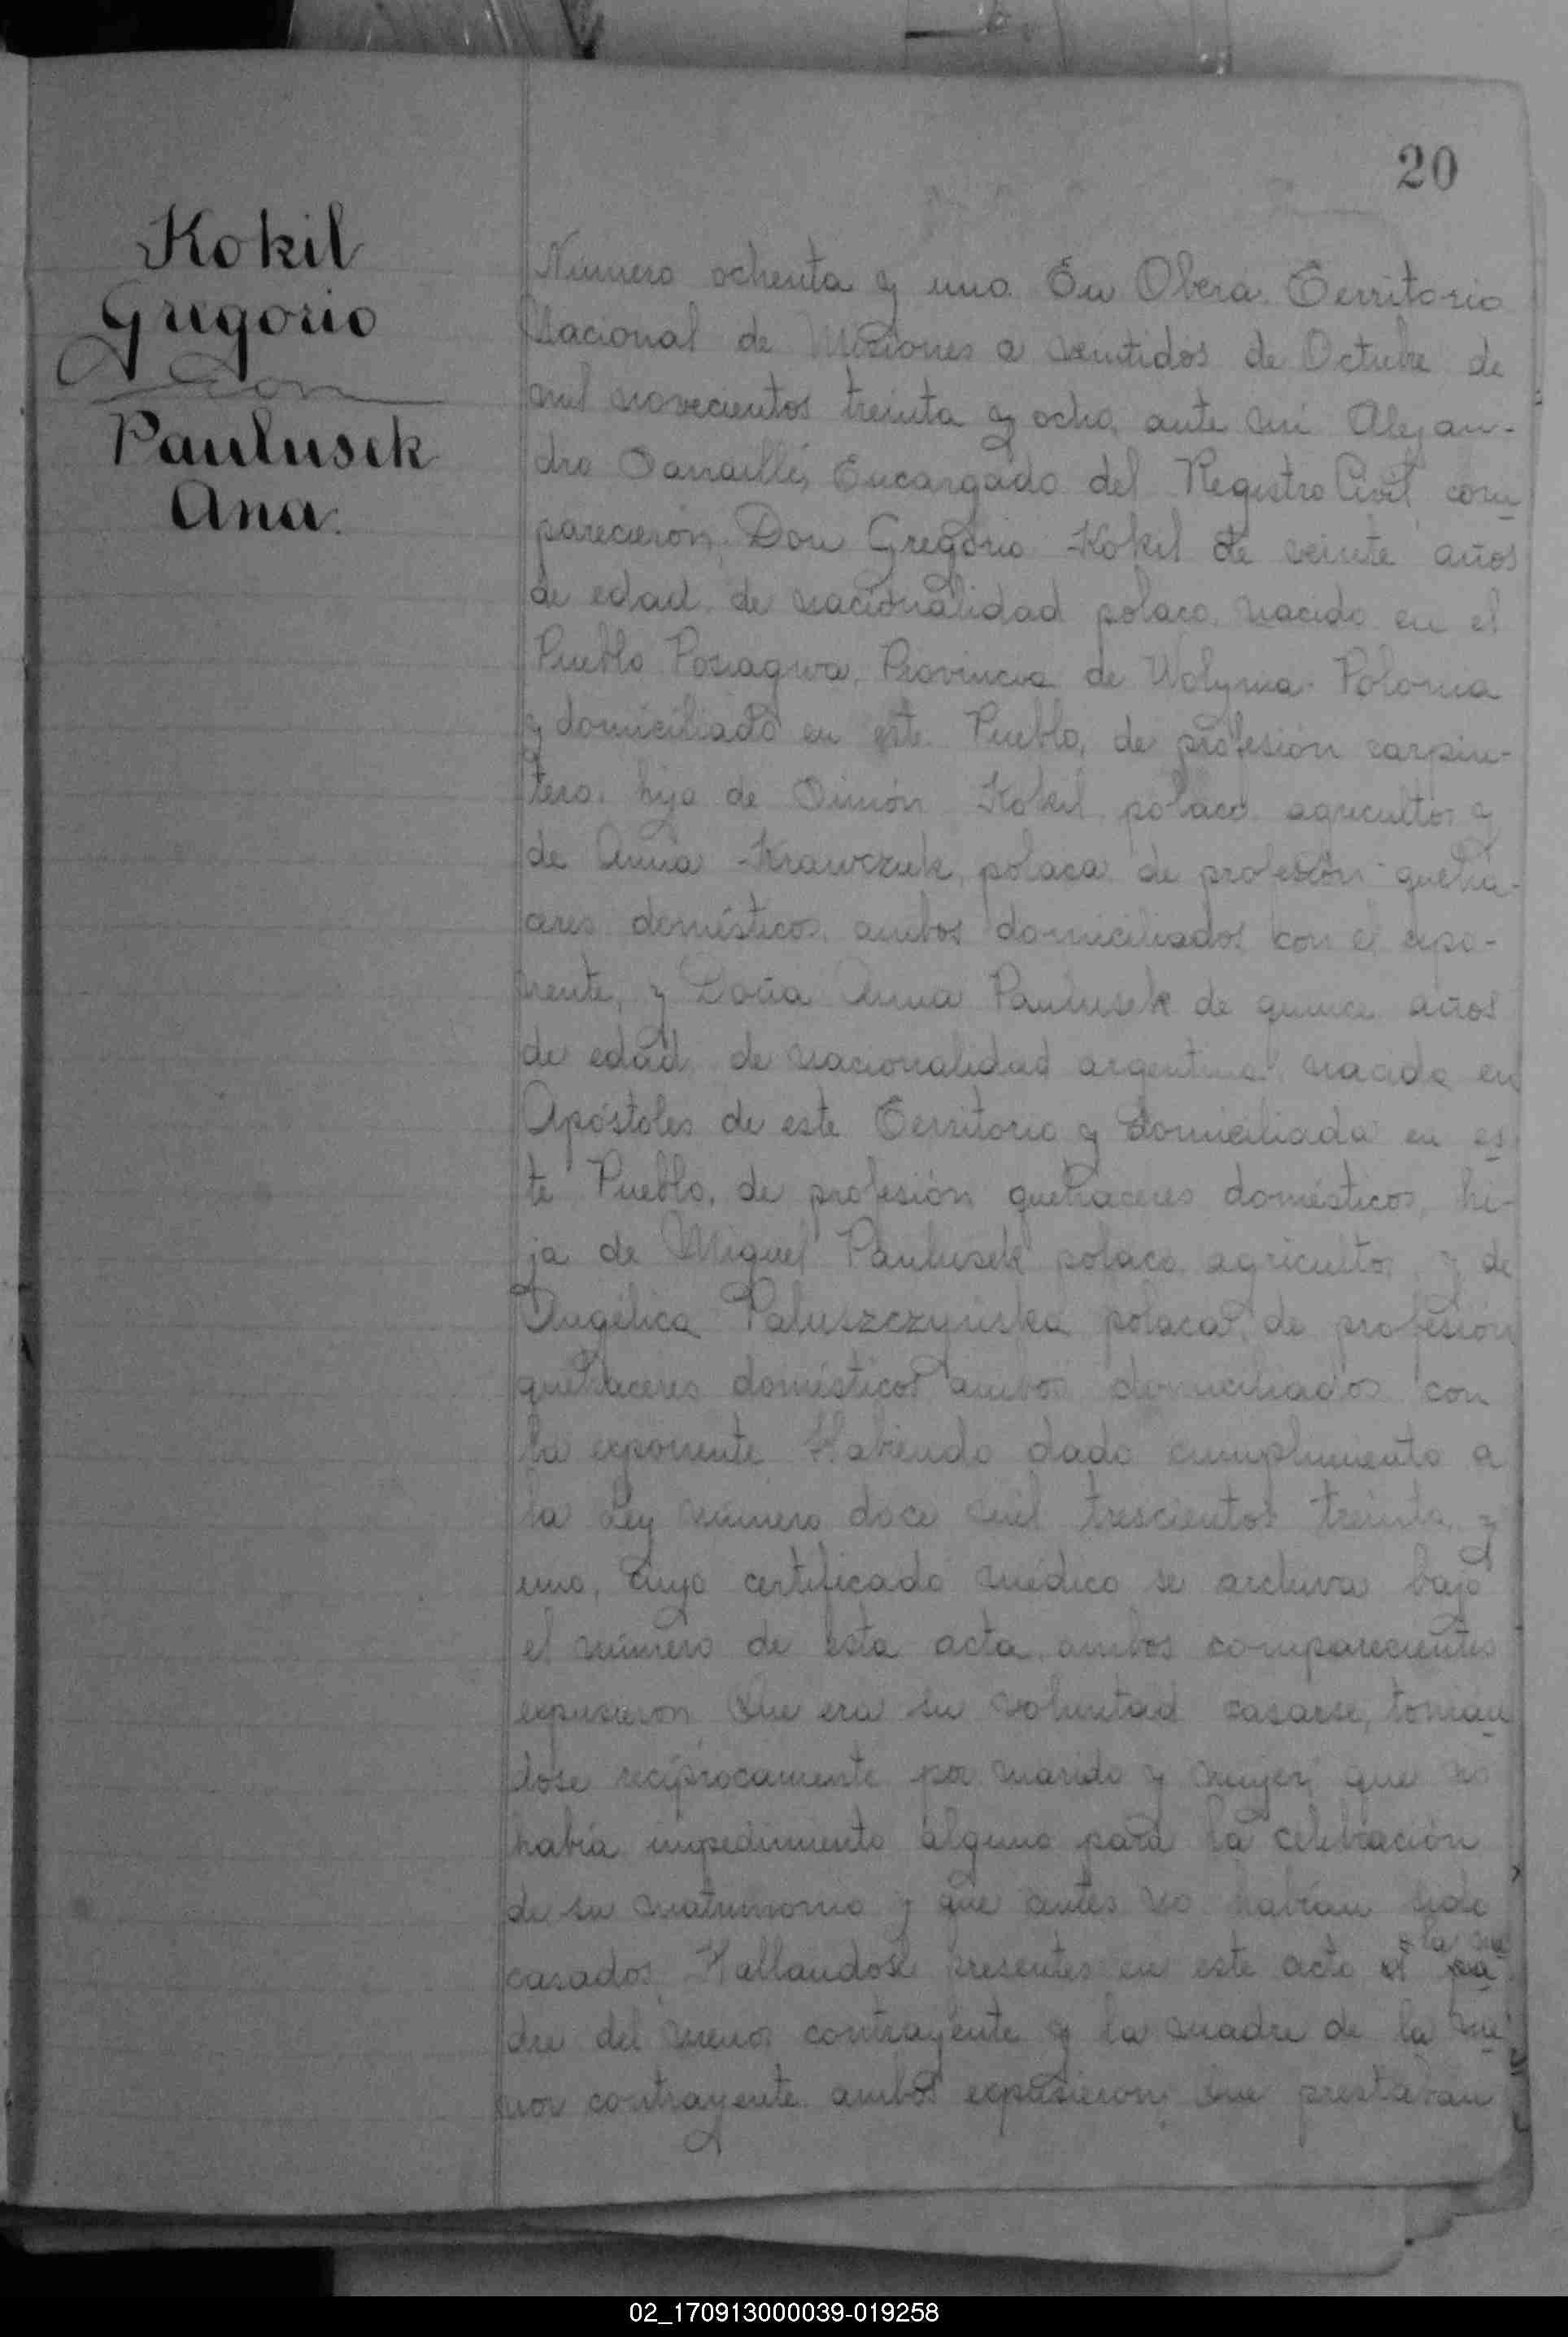 20
Kokil
Gregorio
con
Paulusek
Ana.
Número ochenta y uno. En Oberá Territorio
Nacional de Misiones a veintidos de Octubre de
mil novecientos treinta y ocho, ante mi Alejan-
dro Encargado del Registro Civil, com
parecieron, Don Gregorio Kokil de veinte años
de edad, de nacionalidad polaco, nacido en el
Pueblo Provincia de Wolynia Polonia
y domiciliado en este Pueblo, de profesión carpin-
tero, hijo de Simón Kokil, polaco, agricultor y
de Anna Krawczuk, polaca, de profesión queha-
ceres domésticos, ambos domiciliados con el expo-
nente, y Doña Anna Paulusek de quince años
de edad, de nacionalidad argentina, nacida en
Apóstoles de este Territorio y domiciliada en es
te Pueblo, de profesión quehaceres domésticos, hi-
ja de Miguel Paulusek polaco, agricultor, y de
Angélica Paluszczyńska polaca, de profesión
quehaceres domésticos ambos domiciliados con
la exponente. Habiendo dado cumplimiento a
la Ley número doce mil trescientos treinta y
uno, cuyo certificado médico se archiva bajo
el número de esta acta, ambos comparecientes
expusieron Que era su voluntad casarse, toman
dose recíprocamente por marido y mujer; que no
había impedimento alguno para la celebración
de su matrimonio y que antes no habían sido
la ma
casados. Hallandose presentes en este acto el pa
dre del menor contrayente y la madre de la me
nor contrayente ambos expusieron Que prestaban
02_170913000039-019258